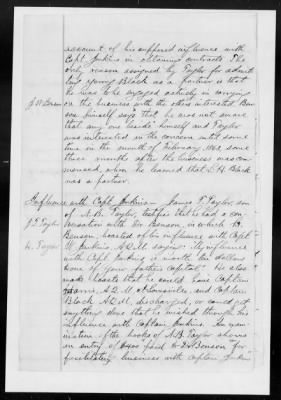 account of his supposed influence with
Capt. Jenkins in obtaining contracts. The
only reason assigned by Taylor for admit-
ting young Black as a partner is that
he was to be engaged actively in carrying
on the business with the others interested. Ben-
son himself says that he was not aware
that any one beside himself and Taylor
was interested in the concern until some
time in the month of February 1863, some
three months after the business was com-
menced, when he learned that L. H. Black
was a partner.
Influence with Capt. Jenkins — James T. Taylor, son
of A. B. Taylor, testifies that he had a con-
J. T. Taylor
versation with Mr. Benson, in which
Benson boasted of his influence with Capt
W. Jenkins, A.Q.M. saying: My influence
with Capt. Jenkins is worth ten dollars
to one of your father's capital. He also
made boasts that he could have Captain
Harris, A.Q.M. at Louisville, and Captain
Black A.Q.M. discharged, or could get
anything done that he wished through his
influence with Captain Jenkins. An exam-
ination of the books of A. B. Taylor shows
an entry of paid to Benson for
facilitating business with Captain Jenkins